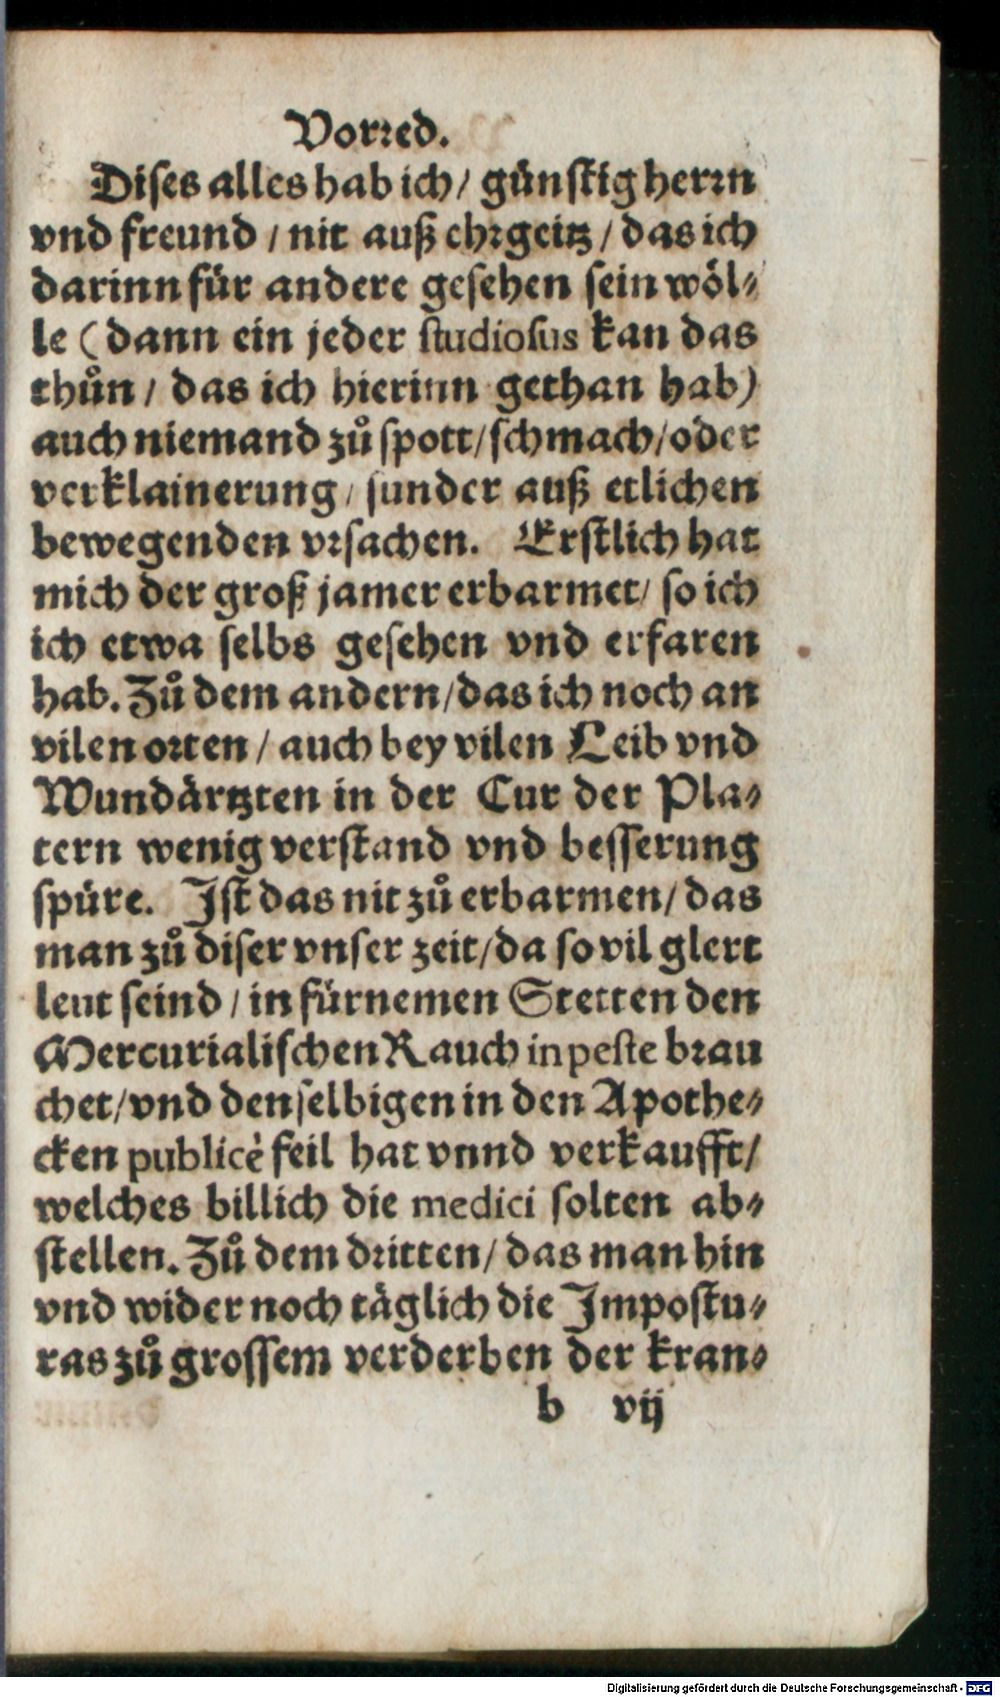 Vorred.
Dises alles hab ich / günstig herrn
vnd freund / nit auß ehrgeitz / das ich
darinn für andere gesehen sein wöl⸗
le (dann ein jeder studiosus kan das
thůn / das ich hierinn gethan hab)
auch niemand zů spott / schmach / oder
verklainerung / sunder auß etlichen
bewegenden vrsachen. Erstlich hat
mich der groß jamer erbarmet / so ich
ich etwa selbs gesehen vnd erfaren
hab. Zů dem andern / das ich noch an
vilen orten / auch bey vilen Leib vnd
Wundärtzten in der Cur der Pla⸗
tern wenig verstand vnd besserung
spüre. Ist das nit zů erbarmen / das
man zů diser vnser zeit / da so vil glert
leut seind / in fürnemen Stetten den
Mercurialischen Rauch in peste brau
chet / vnd denselbigen in den Apothe⸗
cken publicè feil hat vnnd verkaufft /
welches billich die medici solten ab⸗
stellen. Zů dem dritten / das man hin
vnd wider noch täglich die Impostu⸗
ras zů grossem verderben der kran⸗
b vij
Digitalisierung gefördert durch die Deutsche Forschungsgemeinschaft - DFG